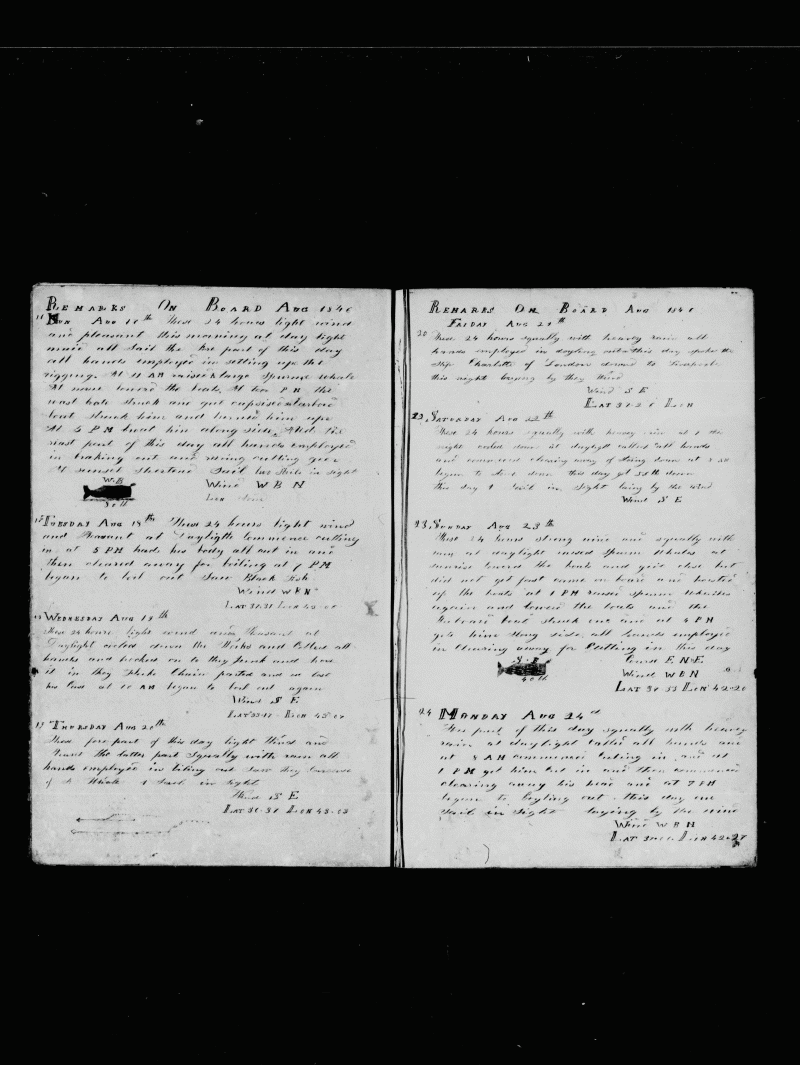 Remarks On Board Aug 1846
Aug 17th These 24 hours light wind
and pleasant this morning at day light
made all Sail the fore part of this day
all hands employed in setting up the
rigging. At 11 AM raised large Spearm whale
At noon lowered the boats At two P M the
wast bote struck and got capsised starbord
bout struck him and turned him upe
At 5 P M brout him along side, And the
last part of this day all hands employed
in braking out and rining cutting geer
At sunset shortend Sail two Sails in sight
W.B
Wind W B N
80 ll
17 Tuesday Aug 18th These 24 hours light wind
and Pleasant at Daylight commence cutting
in at 5 PM had his body all cut in and
then cleared away for boiling at 9 PM
began to boil out Saw Black fish
Wind W B N
Lat 37-31 Lon 42
Wednesday Aug 19th
These 24 hours light wind and Pleasant at
Daylight coled down the Works and Called all
hands and hooked on to they Junk and hove
it in they Fluke Chain parted and we lost
his at 10 AM began to boil out again
Wind S E
Lat Lon 43-07
19 Thursday Aug 20th
These fore part of this day light Wind and
the latter part Squally with rain all
hands employed in biling out Saw they Carcase
of A Whale 1 Sail in Sight
Wind S E
Lat 36-37 Lon 43-03
Remarks On Board Aug 1846
Friday Aug 21th
20 These 24 hours squally with heavey rain all
hands employed in boyling out this day spoke the
Ship Charlotte of London bound to
this night laying by they Wind
Wind S E
Lat 37-2 Lon
22, Saturday Aug 22th
These 24 hours squally with heavey rain at 1 the
night coled down at daylight called all hands
and comenced clearing away of Stoing down at
began to Stow down this day got down
this day 1 Sail in Sight laing by the wind
Wind S E
23, Sunday Aug 23th
These 24 hours strong wind and squally with
rain at daylight raised Spearm Whales at
sunrise lowerd the boats and give chase but
did not get fast came on board and hoisted
up the boats at 1 P M raised spearm Whales
again and lowerd the boats and the
Larboard boat struck one and at 4 P M
got him along side all hands employed
in Clearing away for Cutting in this day
E N E
40 ll
Wind W B N
Lat 37-53 Lon 42-20
24 Monday Aug 24d
Fore part of this day squally with heavey
rain at daylight called all hands and
at 8 AM commenced cuting in and at
1 P M got him Cut in and then commenced
clearing away his head and at 7 P M
began to boyling out this day one
Sail in Sight laying by the wind
Wind W B N
Lat Lon 42-27